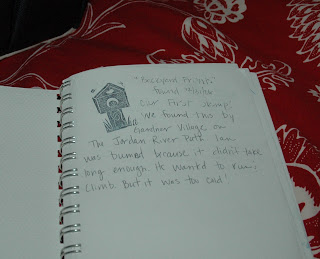 "Backyard Friends"
Found
Our First Stamp!
We found this by
Gardner Village on
The Jordan River Path. Ian
was bummed because it didn't take
long enough. He wanted to run
climb. But it was too cold!